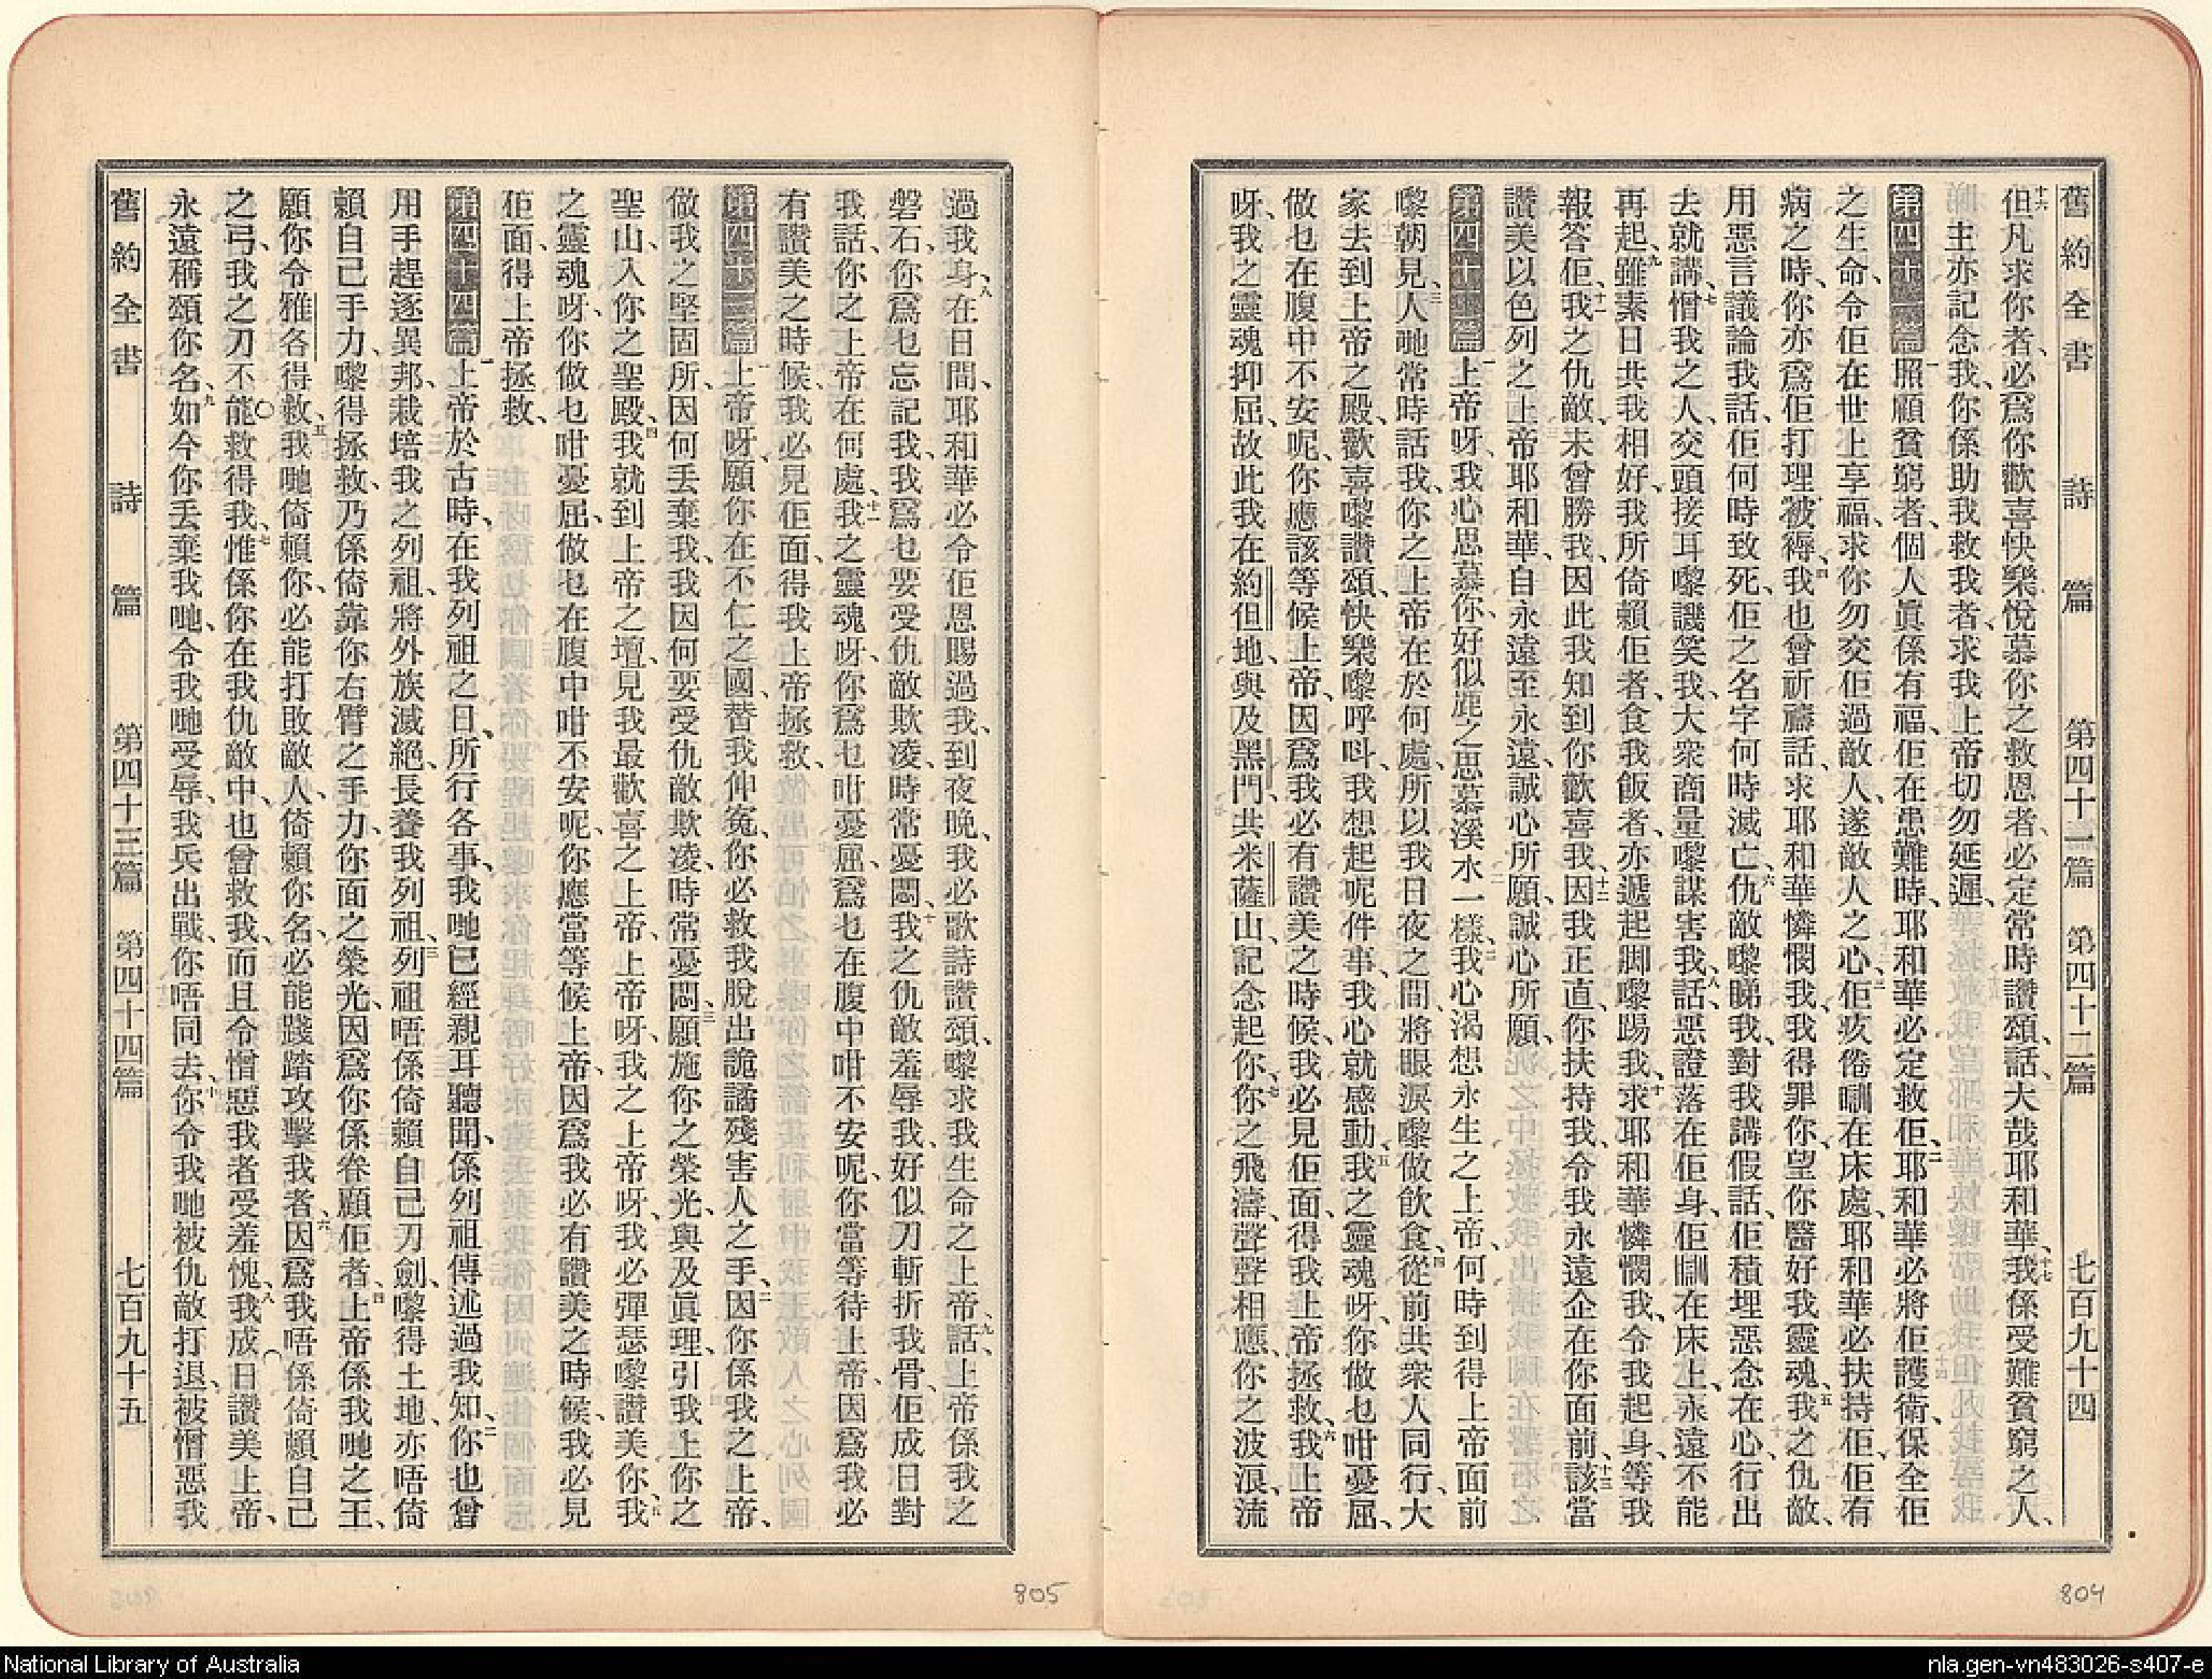 舊約全書 詩篇 第四十一篇 第四十二篇 七百九十四
十六但凡求你者、必爲你歡喜快樂悅慕你之救恩者、必定常時讚頌、話大哉耶和華、十七我係受難貧窮之人、
主亦記念我、你係助我救我者、求我上帝切勿延遲、
第四十一篇 一照顧貧窮者、個人眞係有福、佢在患難時、耶和華必定救佢、二耶和華必將佢護衛、保全佢
之生命、令佢在世上享福、求你勿交佢過敵人、遂敵人之心、三佢疚倦瞓在床處、耶和華必扶持佢、佢有
病之時、你亦爲佢打理被褥、四我也曾祈禱話、求耶和華憐憫我、我得罪你、望你醫好我靈魂、五我之仇敵、
用惡言議論我話、佢何時致死、佢之名字何時滅亡、六仇敵嚟睇我、對我講假話、佢積埋惡念在心、行出
去就講、七憎我之人、交頭接耳嚟譏笑我、大衆商量嚟謀害我、八話、惡證落在佢身、佢瞓在床上、永遠不能
再起、九雖素日共我相好、我所倚賴佢者、食我飯者、亦遞起脚嚟踢我、十求耶和華憐憫我、令我起身、等我
報答佢、十一我之仇敵、未曾勝我、因此我知到你歡喜我、十二因我正直、你扶持我、令我永遠企在你面前、十三該當
讚美以色列之上帝耶和華、自永遠至永遠、誠心所願、誠心所願、
第四十二篇 一上帝呀、我心思慕你、好似鹿之思慕溪水一樣、二我心渴想永生之上帝、何時到得上帝面前
嚟朝見、三人哋常時話我、你之上帝在於何處、所以我日夜之間、將眼淚嚟做飲食、四從前共衆人同行、大
家去到上帝之殿、歡喜嚟讚頌、快樂嚟呼呌、我想起呢件事、我心就感動、五我之靈魂呀、你做乜咁憂屈、
做乜在腹中不安呢、你應該等候上帝、因爲我必有讚美之時候、我必見佢面、得我上帝拯救、六我上帝
呀、我之靈魂抑屈、故此我在約但地、與及黑門共米薩山、記念起你、七你之飛濤、聲聲相應、你之波浪、流
804
舊約全書 詩篇 第四十三篇 第四十四篇 七百九十五
過我身、八在日間、耶和華必令佢恩賜過我、到夜晚、我必歌詩讚頌、嚟求我生命之上帝、九話、上帝係我之
磐石、你爲乜忘記我、我爲乜要受仇敵欺凌、時常憂悶、十我之仇敵羞辱我、好似刀斬折我骨、佢成日對
我話、你之上帝在何處、十一我之靈魂呀、你爲乜咁憂屈、爲乜在腹中咁不安呢、你當等待上帝、因爲我必
有讚美之時候、我必見佢面、得我上帝拯救、
第四十三篇 一上帝呀、願你在不仁之國、替我伸冤、你必救我脫出詭譎殘害人之手、二因你係我之上帝、
做我之堅固所、因何丢棄我、我因何要受仇敵欺凌、時常憂悶、三願施你之榮光、與及眞理、引我上你之
聖山、入你之聖殿、四我就到上帝之壇、見我最歡喜之上帝、上帝呀、我之上帝呀、我必彈瑟嚟讚美你、五我
之靈魂呀、你做乜咁憂屈、做乜在腹中咁不安呢、你應當等候上帝、因爲我必有讚美之時候、我必見
佢面、得上帝拯救、
第四十四篇 一上帝於古時、在我列祖之日、所行各事、我哋已經親耳聽聞、係列祖傳述過我知、二你也曾
用手趕逐異邦、栽培我之列祖、將外族滅絕、長養我列祖、三列祖唔係倚賴自己刀劍、嚟得土地、亦唔倚
賴自己手力、嚟得拯救、乃係倚靠你右臂之手力、你面之榮光、因爲你係眷顧佢者、四上帝係我哋之王、
願你令雅各得救、五我哋倚賴你、必能打敗敵人、倚賴你名、必能踐踏攻擊我者、六因爲我唔係倚賴自己
之弓、我之刀不能救得我、七惟係你在我仇敵中、也曾救我、而且令憎惡我者受羞愧、八我成日讚美上帝、
永遠稱頌你名、九如今你丢棄我哋、令我哋受辱、我兵出戰、你唔同去、十你令我哋被仇敵打退、被憎惡我
805
National Library of Australia
nla.gen-vn483026-s407-e